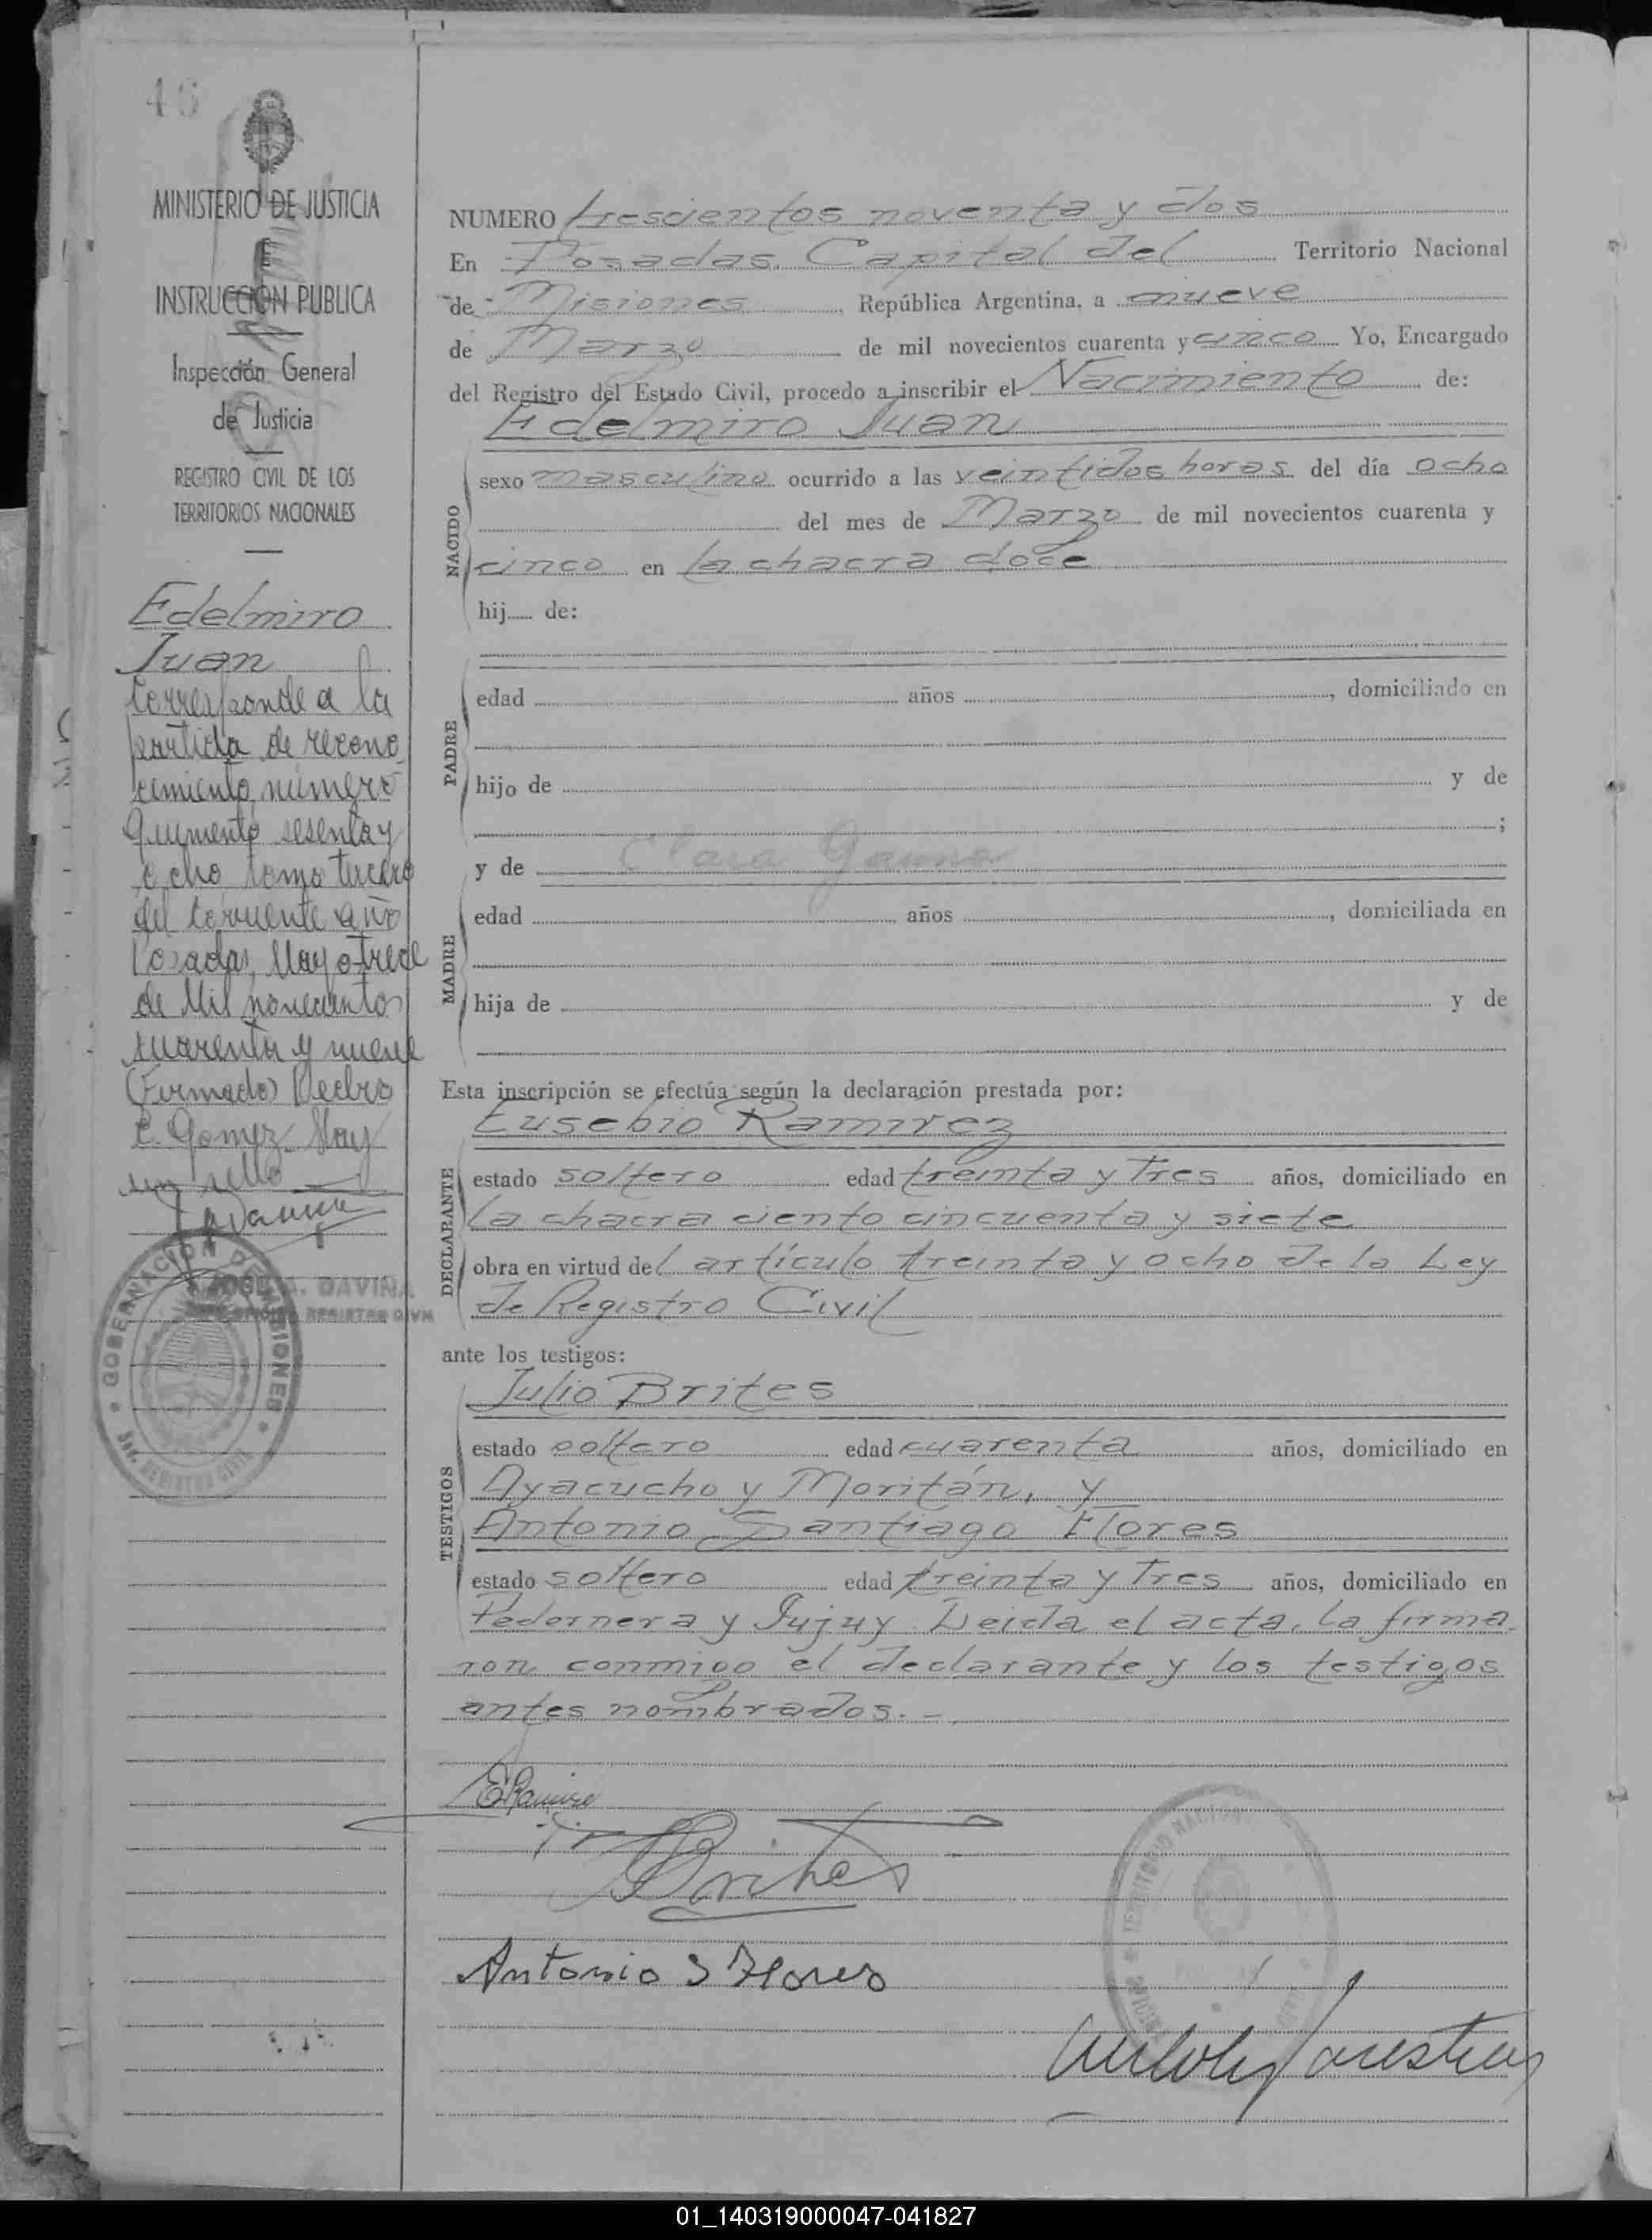 46
MINISTERIO DE JUSTICIA
E
INSTRUCCION PUBLICA
Inspección General
de Justicia
REGISTRO CIVIL DE LOS
TERRITORIOS NACIONALES
Edelmiro
Juan
Corresponde a la
partida de recono
cimiento número
quiniento sesenta y
ocho tomo tercero
del corriente año
Posadas, Mayo trece
de Mil novecientos
cuarenta y nueve
(Firmado) Pedro
C. Gomez. Hay
un sello
JOSE A. DAVIÑA
REGISTRO CIVIL
GOBERNACION DE MISIONES
REGISTRO CIVIL
NUMERO trescientos noventa y dos
En Posadas, Capital del Territorio Nacional
de Misiones República Argentina, a nueve
de Marzo de mil novecientos cuarenta y cinco Yo, Encargado
del Registro del Estado Civil, procedo a inscribir el Nacimiento de:
Edelmiro Juan
NACIDO
sexo masculino ocurrido a las veintidos horas del día ocho
del mes de Marzo de mil novecientos cuarenta y
cinco en la chacra doce
hij de:
PADRE
edad años , domiciliado en
hijo de y de
;
y de Clara Gauna
MADRE
edad años , domiciliada en
hija de y de
Esta inscripción se efectúa según la declaración prestada por:
Eusebio Ramirez
DECLARANTE
estado soltero edad treinta y tres años, domiciliado en
la chacra ciento cincuenta y siete
obra en virtud del artículo treinta y ocho de la Ley
de Registro Civil
ante los testigos:
Julio Brites
TESTIGOS
estado soltero edad cuarenta años, domiciliado en
Ayacucho y Moritán, y
Antonio Santiago Flores
estado soltero edad treinta y tres años, domiciliado en
Pedernera y Jujuy. Leida el acta, la firma-
ron conmigo el declarante y los testigos
antes nombrados. -
E Ramirez
Brites
Antonio S Flores
TERRITORIO NACIONAL
01_140319000047-041827